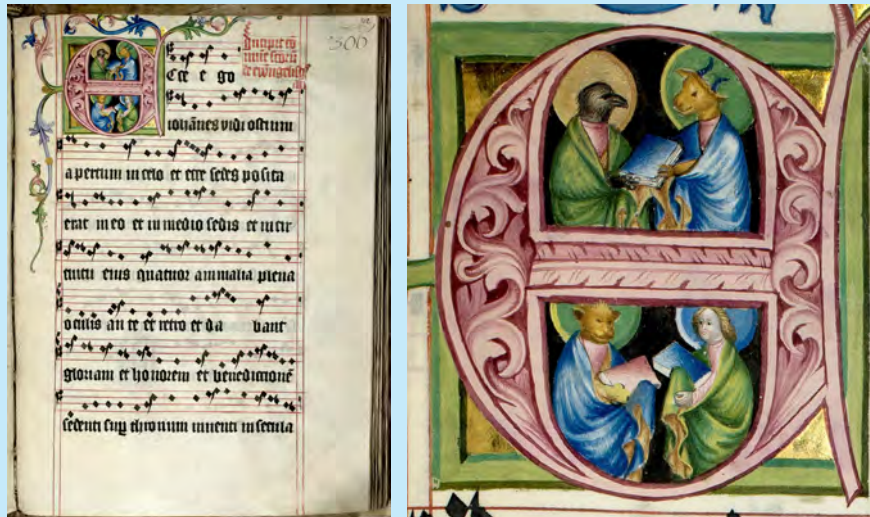 300
Incipit cō
mune scōrū
de ewāngelist
Ecce e go
iohānes vidi ostium
apertum in celo et ecce sedes posita
erat in eo et in medio sedis et in cir
cuitu eius quatuor animalia plena
oculis an te et retro et da bant
gloriam et ho norem et benedictionē
sedenti sup thronum viuenti in secula